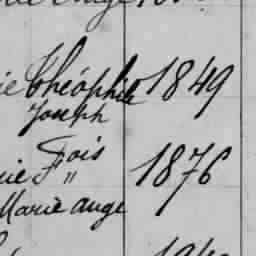 Théophile 1849
Joseph
Fois 1876
"
Marie ange